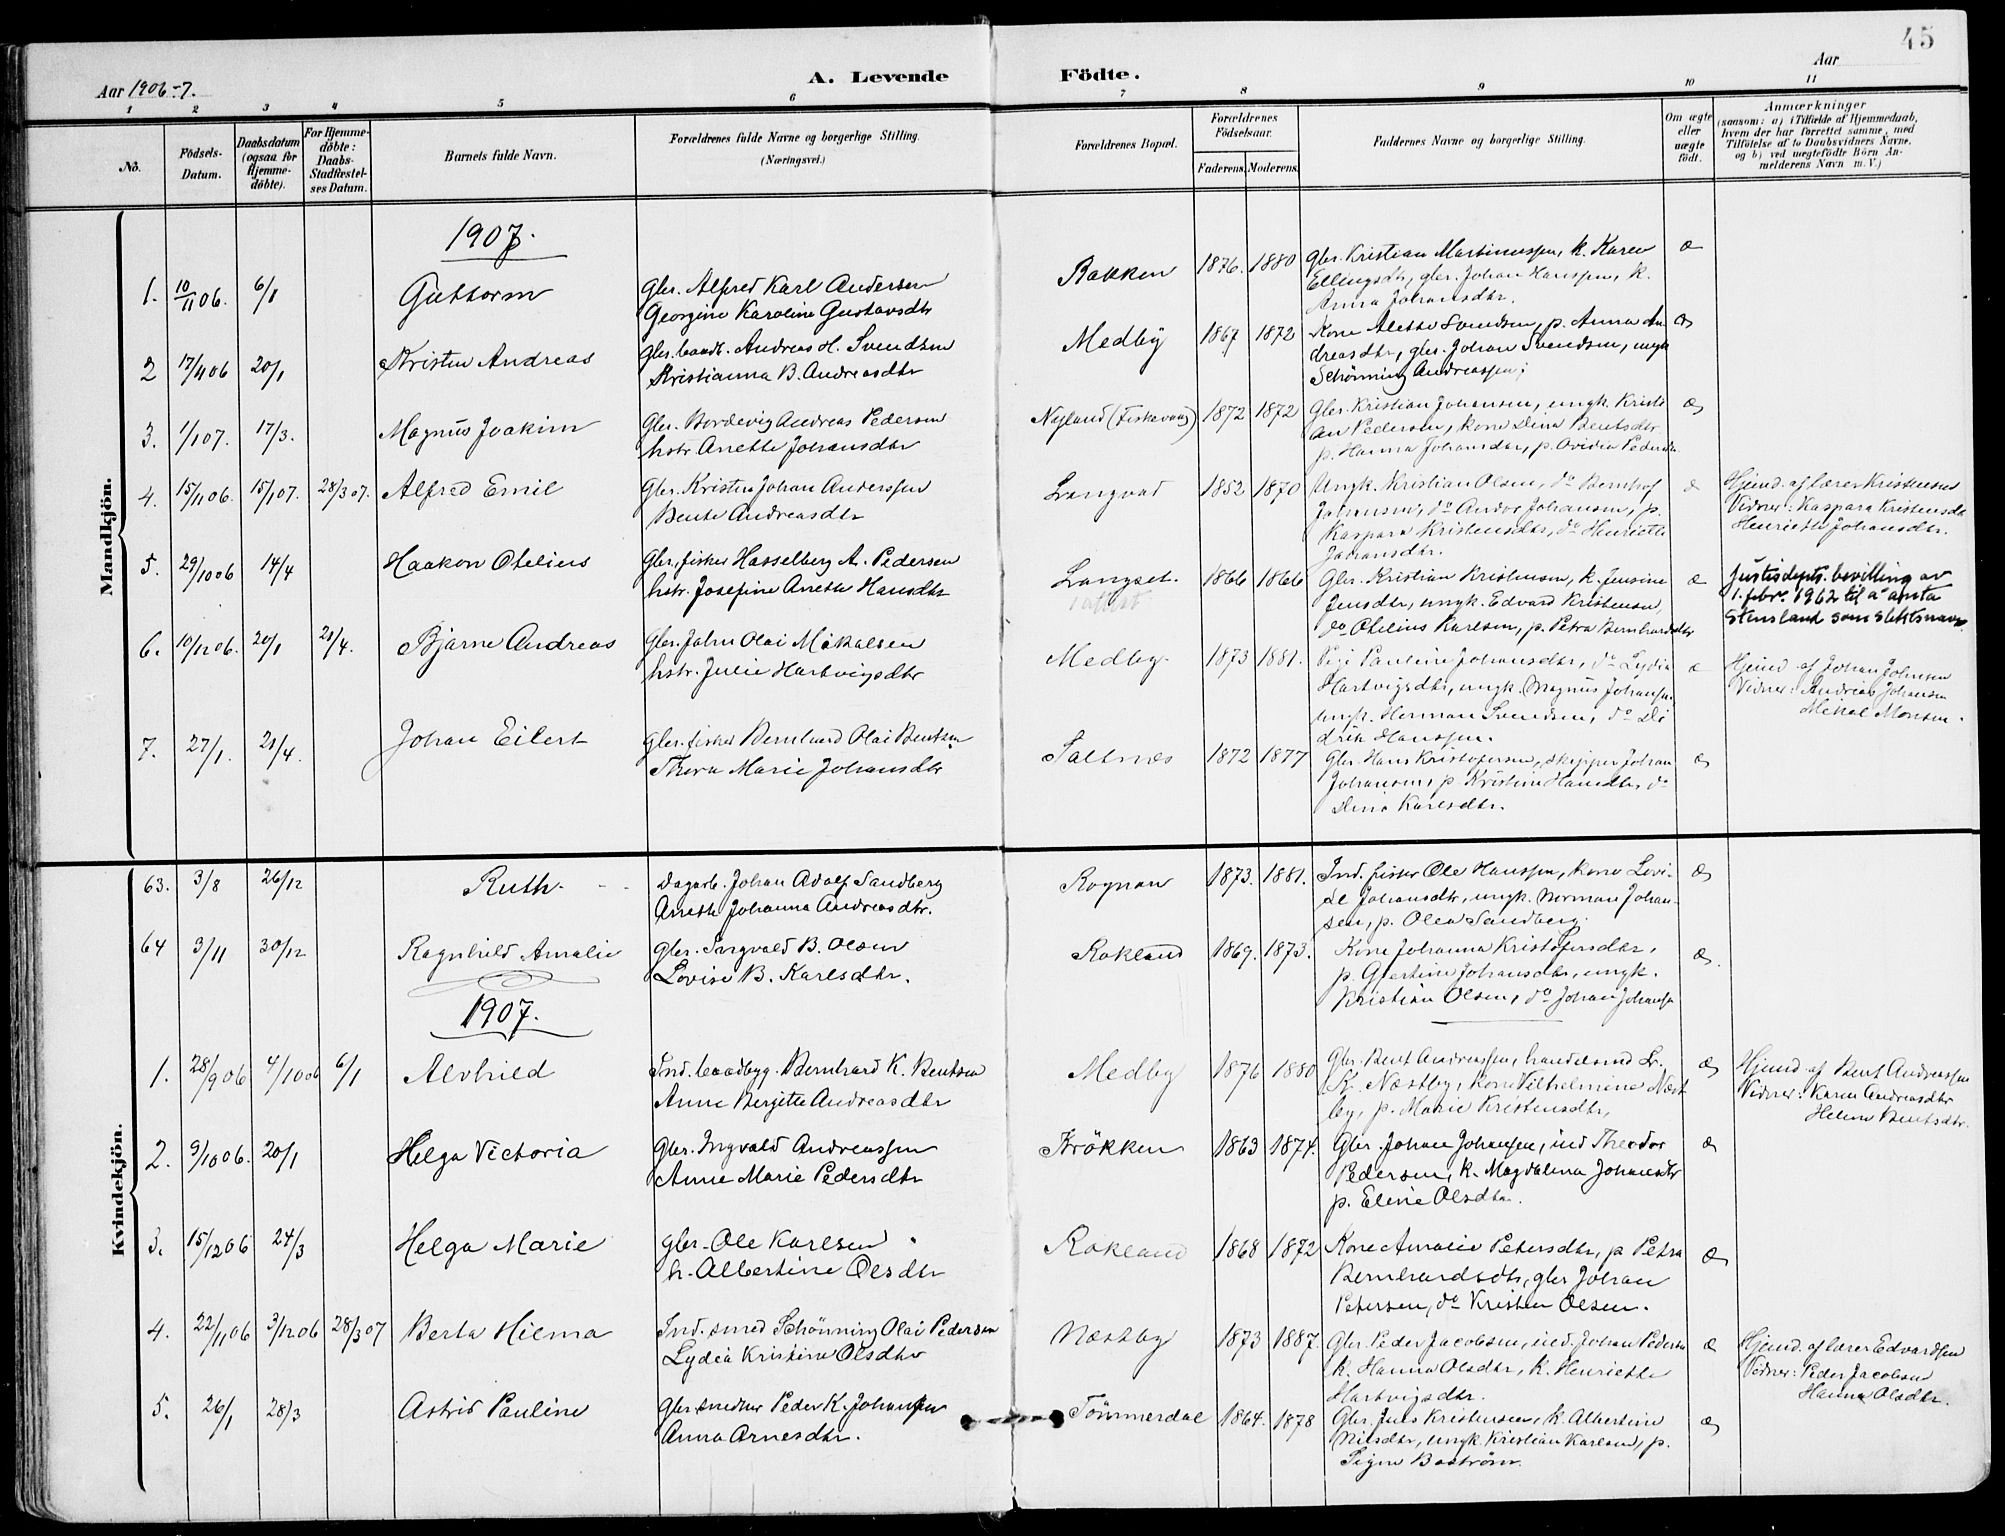 45
Aar 1906-7.
A. Levende Födte.
Aar
1 2 3 4 5 6 7 8 9 10 11
No.
Födsels-Datum.
Daabsdatum (ogsaa for Hjemme-döbte).
For Hjemme-döbte: Daabs-Stadfæstel-ses Datum.
Barnets fulde Navn.
Forældrenes fulde Navne og borgerlige Stilling.
(Næringsvei.)
Forældrenes Bopæl.
Forældrenes Födselsaar.
Faderens. Moderens.
Faddernes Navne og borgerlige Stilling.
Om ægte eller uægte födt.
Anmærkninger
(saasom: a) i Tilfælde af Hjemmedaab,
hvem der har forrettet samme, med
Tilföielse af to Daabsvidners Navne,
og b) ved uægtefödte Börn An-
melderens Navn m. V.)
Mandkjön.
1907.
1. 10/11 06. 6/1 Guttorm
Gbr. Alfred Karl Andersen
Georgine Karoline Gustavsdtr
Bakken 1876. 1880
Gbr. Kristian Martinussen, k. Karen
Ellingsdtr, gbr. Johan Hanssen, k.
Anna Johansdtr.
æ
2 17/11 06 20/1 Kristen Andreas
Gbr. baadb. Andreas H. Svendsen
Kristianna B. Andreasdtr
Medby 1867 1872
Kone Alette Svendsen, p. Anna An
dreasdtr, gbr. Johan Svendsen, ungk
Schönning Andreassen;
æ
3. 1/1 07. 17/3. Magnus Joakim
Gbr. Bordevig Andreas Pedersen
hstr Anette Johansdtr
Nyland (Fiskevaag) 1872 1872
Gbr. Kristian Johansen, ungk. Kristi
an Pedersen, kone Dina Bentsdtr
p. Hanna Johansdtr, p. Ovidia Pedersen
æ
4. 15/11 06. 15/1 07. 28/3 07. Alfred Emil
Gbr. Kristen Johan Anderssen
Bente Andreasdtr
Langvad 1852 1870
Ungk. Kristian Olsen, do Bernhof
Johansen, do Andor Johansen, p.
Kaspara Kristensdtr, do Henriette
Johansdtr.
æ
Hjemd. af lærer Kristensen
Vidner: Kaspara Kristensdtr
Henriette Johansdtr.
5. 29/10 06 14/4 Haakon Otelius
Gbr. fisker Hasselberg A. Pedersen
hstr. Josefine Anette Hansdtr
Langset. 1866 1866
Gbr. Kristian Kristensen, k. Jensine
Jensdtr, ungk. Edvard Kristensen,
do Otelius Karlsen, p. Petra Bernhardsdtr
æ
Justisdepts. bevilling av
1. febr. 1962 til å anta
Stensland som slektsnavn.
6. 10/12 06. 20/1 21/4. Bjarne Andreas
Gbr. John Olai Mikalsen
hstr. Julie Hartvigsdtr
Medby. 1873 1881.
Pige Pauline Johansdtr, do Lydia
Hartvigsdtr, ungk. Magnus Johansen
ungk. Herman Svendsen, do Di
drik Hanssen.
æ
Hjemd. af Johan Johnsen
Vidner: Andreas Johansen
Mikal Monsen.
7. 27/1. 21/4. Johan Eilert
Gbr. fisker Bernhard Olai Bentsen
Thora Marie Johansdtr
Saltnes 1872 1877
Gbr. Hans Kristofersen, skipper Johan
Johansen, p. Kristine Hansdtr, do
Dina Karlsdtr.
æ
Kvindekjön.
63. 3/8 26/12 Ruth
Dagarb. Johan Adolf Sandberg
Anette Johanna Andreasdtr.
Rognan 1873. 1881.
Ind. fisker Ole Hanssen, kone Lovi-
se Johansdtr, ungk. Norman Johan-
sen, p. Olea Sandberg.
æ
64 3/11 30/12 Ragnhild Amalie
Gbr. Ingvald B. Olsen
Lovise B. Karlsdtr.
Rokland 1869. 1873.
Kone Johanna Kristofersdtr,
p. Gjertine Johansdtr, ungk.
Kristian Olsen, do Johan Johansen
æ.
1907.
1. 28/9 06 4/10 06 6/1 Alvhild
Ind. baadbyg. Bernhard K. Bentsen
Anne Bergitte Andreasdtr
Medby 1876 1880
Gbr. Bent Andreassen, handelsmd Lr.
K. Næstby, kone Vilhelmine Næst
by, p. Marie Kristensdtr,
æ
Hjemd. af Bent Andreassen
Vidner: Karen Andreasdtr
Helene Bentsdtr.
2. 9/10 06. 20/1 Helga Victoria
Gbr. Ingvald Andreassen
Anne Marie Pedersdtr
Krökken 1863 1874.
Gbr. Johan Johansen, ind Theodor
Pedersen, k. Magdalena Johansdtr
p. Eline Olsdtr.
æ
3. 15/12 06 24/3 Helga Marie
Gbr. Ole Karlsen
h. Albertine Olsdtr
Rokland 1868 1872
Kone Amalie Petersdtr, p Petra
Bernhardsdtr, gbr Johan
Petersen, do Kristen Olsen.
æ
4. 22/11 06 3/12 06 28/3 07 Berta Hilma
Ind. smed Schönning Olai Pedersen
Lydia Kristine Olsdtr
Næstby 1873 1887.
Gbr. Peder Jacobsen, ind. Johan Pedersen
k. Hanna Olsdtr, k. Henriette
Hartvigsdtr.
æ
Hjemd. af lærer Edvardsen
Vidner: Peder Jacobsen
Hanna Olsdtr.
5. 26/1 28/3 Astrid Pauline
Gbr. snedker Peder K. Johansen
Anna Arnesdtr.
Tömmerdal 1864. 1878
Gbr. Jens Kristensen, k. Albertine
Nilsdtr, ungk. Kristian Karlsen, p.
Signe Boström.
æ